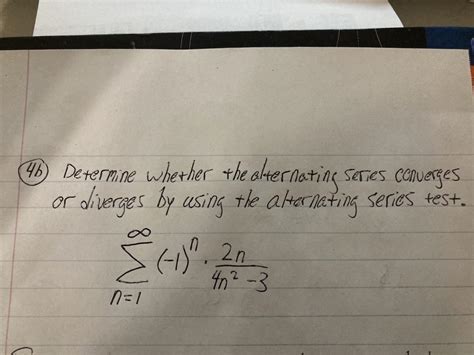 4b Determine whether the alternating series converges
or diverges by using the alternating series test.
∞
∑ (-1)ⁿ · 2n / 4n² - 3
n=1